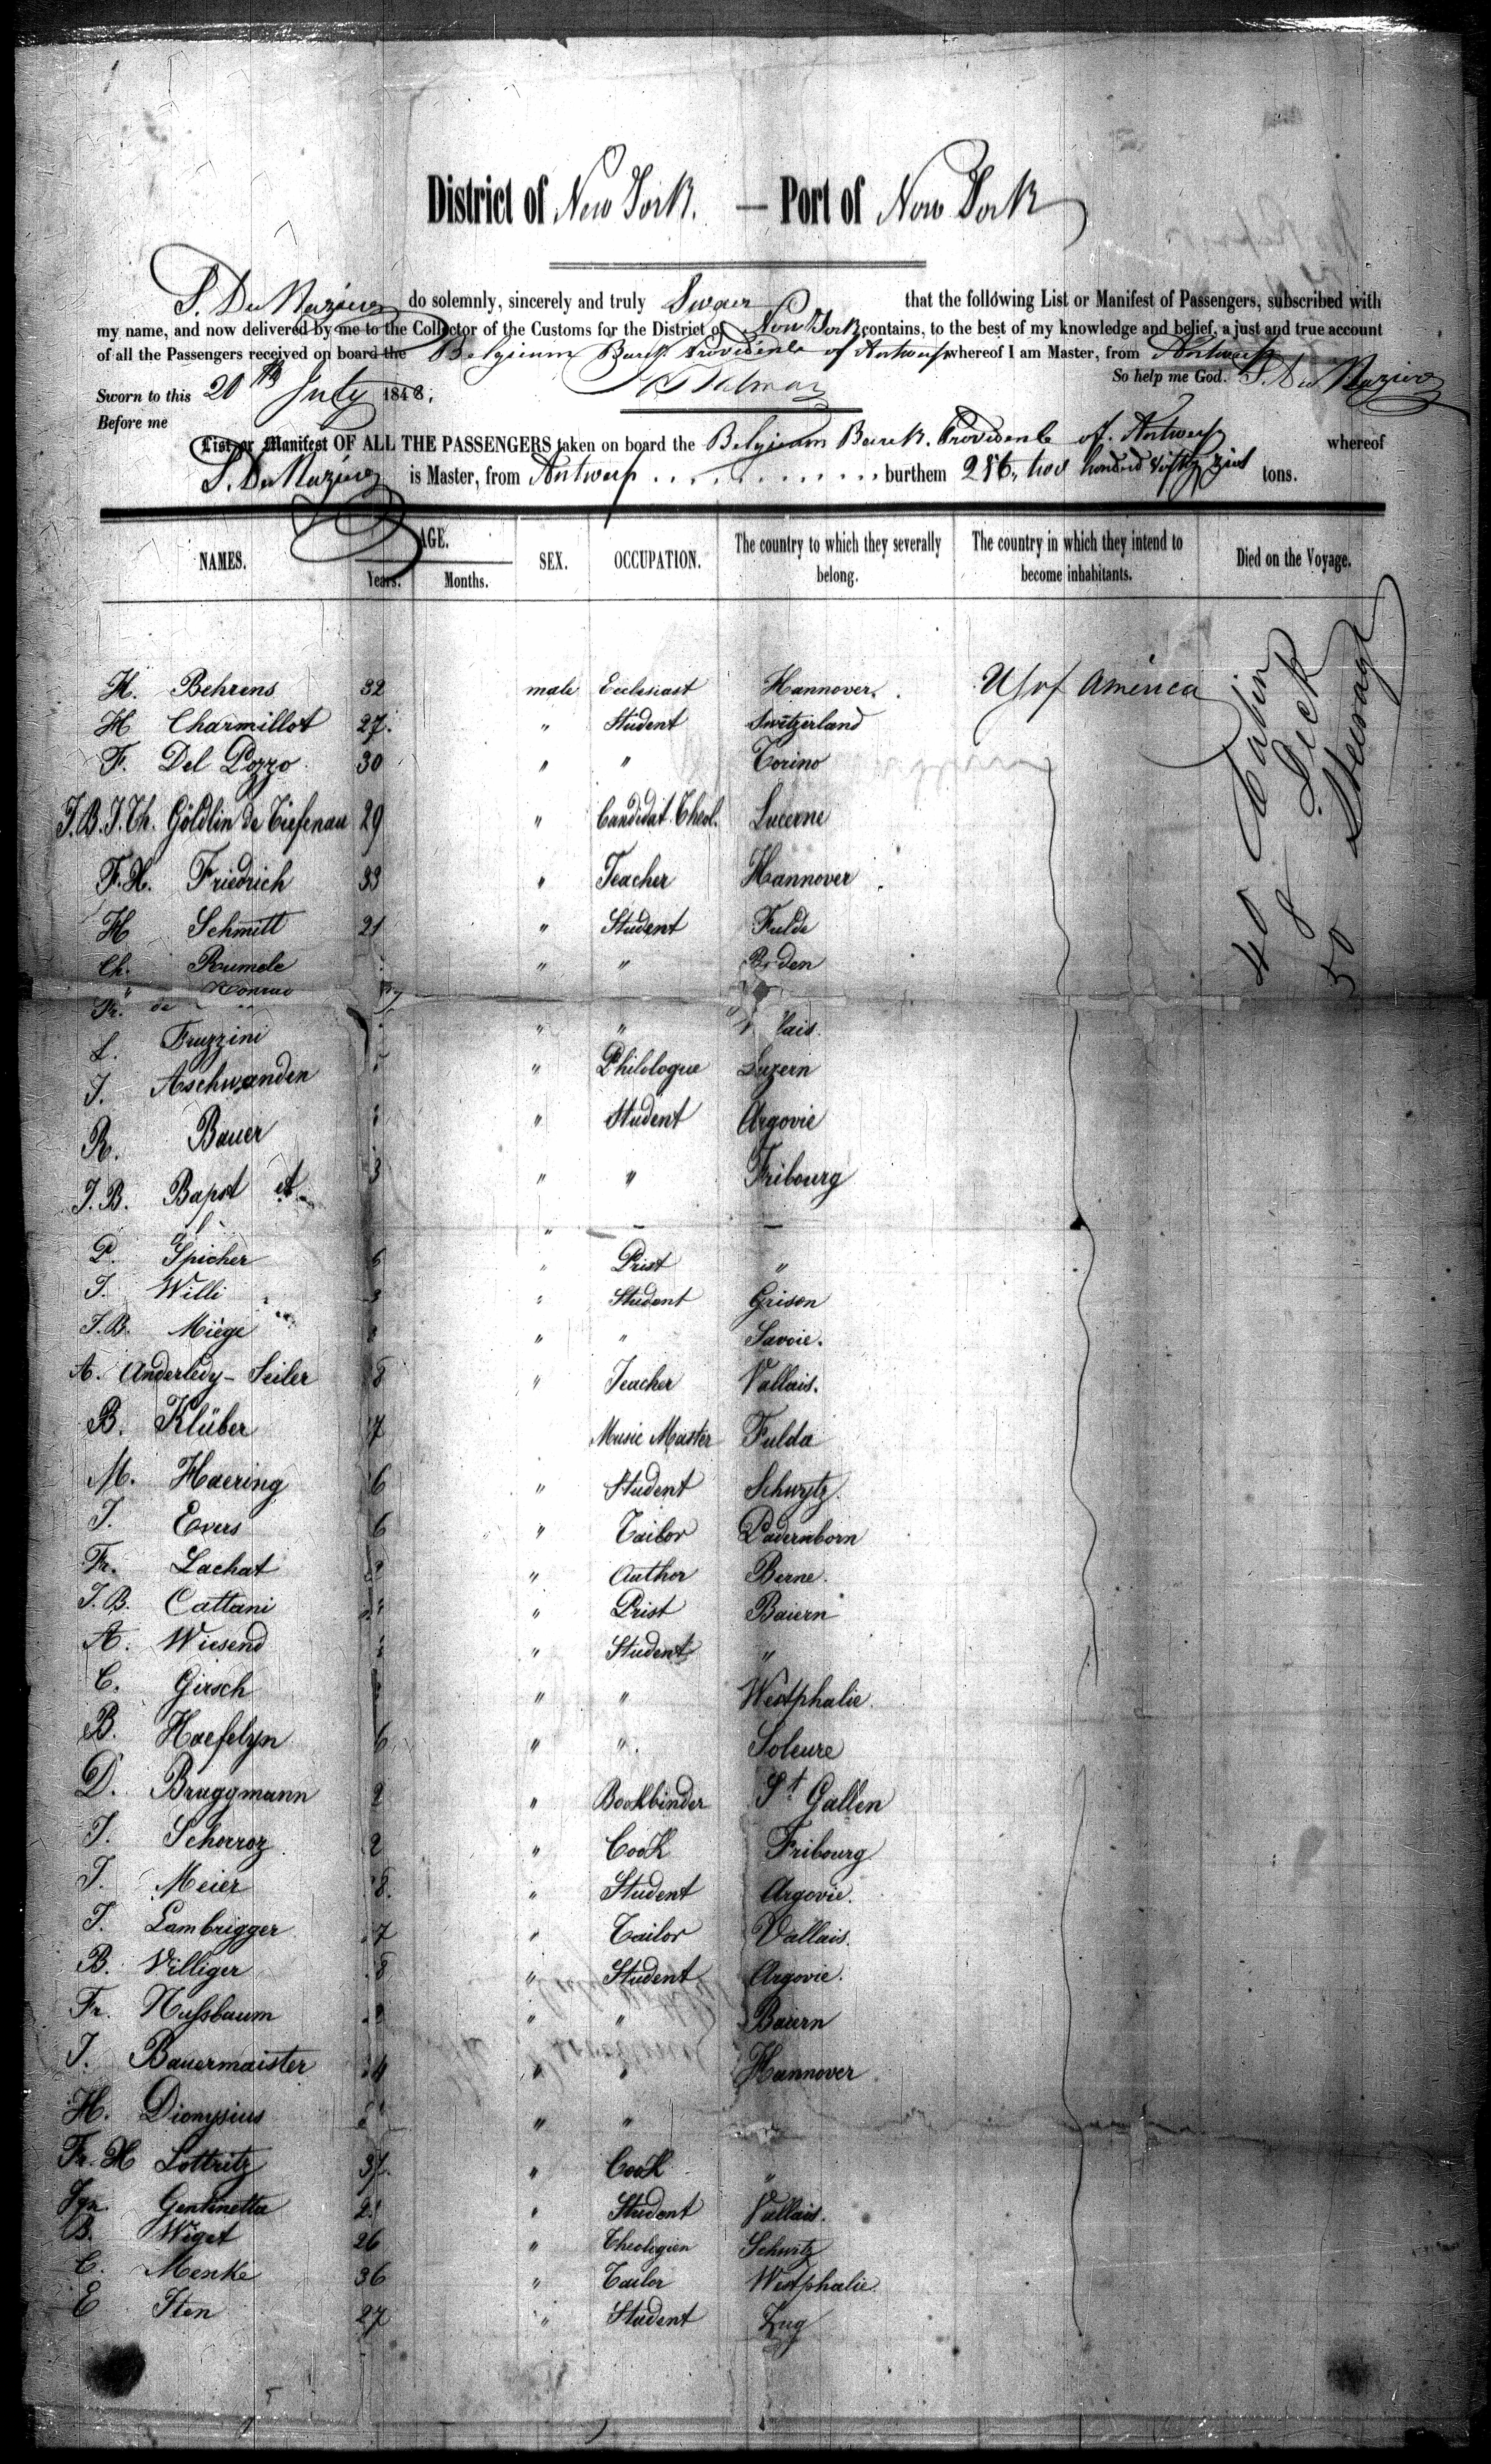 District of New York. — Port of New York
S. De Nazine do solemnly, sincerely and truly Swaer that the following List or Manifest of Passengers, subscribed with
my name, and now delivered by me to the Collector of the Customs for the District of New York contains, to the best of my knowledge and belief, a just and true account
of all the Passengers received on board the Belgieum Bark Providente of Antwerp whereof I am Master, from Antwerp
So help me God.
Sworn to this 20th July 1848;
Before me
List or Manifest OF ALL THE PASSENGERS taken on board the Belgieum Barck. Providente of. Antwerp whereof
is Master, from Antwerp . . . . . . . . . . . . burthem 256, two hondred fifthy tons.
NAMES. AGE. Years. Months. SEX. OCCUPATION. The country to which they severally belong. The country in which they intend to become inhabitants. Died on the Voyage.
H. Behrens 32 male Ecclesiast Hannover. U S of America
H Charmillot 27. " Student Switzerland
F. Del Pozzo 30 " " Torino
J.B.J.Th. Göldlin de Tiefenau 29 " Candidat. Theol. Lucerne
F.H. Friedrich 33 " Teacher Hannover
H Schmitt 21 " Student Fulde
Ch. Rumele " " Baden
Fr. de
L. Fruzzini " " lais.
J. Aschwanden " Philologue Luzern
R. Bauer " Student Argovie
J.B. Bapst et " " Fribourg
P. Spicher 6 " Prist "
J. Willi " Student Grison
J.B. Miège " " Savoie.
A. Anderledy - Seiler 8 " Teacher Vallais.
B. Klüber 7 Music Master Fulda
M. Haering 6 " Student Schwytz.
J. Evers 6 " Tailor Padernborn
Fr. Lachat " Author Berne.
J.B. Cattani " Prist Baiern
A. Wiesend " Student "
C. Girsch " " Westphalie
B. Haefelyn 6 " " Soleure
D. Bruggmann 2 " Bookbinder St Gallen
J. Schorroz 2 " Cook Fribourg
J. Meier 8. " Student Argovie.
J. Lambrigger 7 " Tailor Vallais.
B. Villiger 8 " Student Argovie.
Fr. Nussbaum " " Baiern
J. Bauermaister 4 " " Hannover
H. Dionysius " "
Fr. H Lottritz 37. " Cook "
Ign. Gentinetta 2. " Student Vallais.
B. Wiget 26 " Theologien Schwitz
C. Menke 36 " Tailor Westphalie
E Iten 27 " Student Zug
40 Cabin
8 Deck
50 Steerage